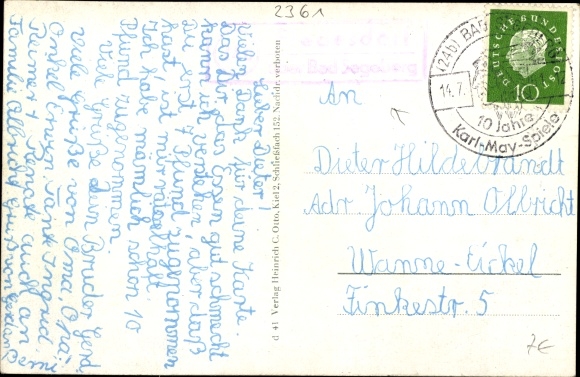 2361
Lieber Dieter!
Vielen Dank für deine Karte.
Das dir das Essen gut schmeckt
kann ich verstehen, aber daß
Du erst 4 Pfund zugenommen
hast, ist mir rätselhaft.
Ich habe nämlich schon 10
Pfund zugenommen.
Viele Grüße dein Bruder Gerd.
Viele Grüße von Oma, Opa,
Onkel Ernst, Tante Ingrid,
Reimer + Renate auch an
Familie Ollbricht Gruß von
d 41 Verlag Heinrich C. Otto, Kiel 2, Schließfach 152. Nachdr. verboten
(24b) BAD
14.7.
10 Jahre
Karl-May-Spiele
DEUTSCHE BUNDESPOST
10
An
Dieter Hildebrandt
Adr Johann Ollbricht
Wanne-Eickel
Finkestr. 5
7€